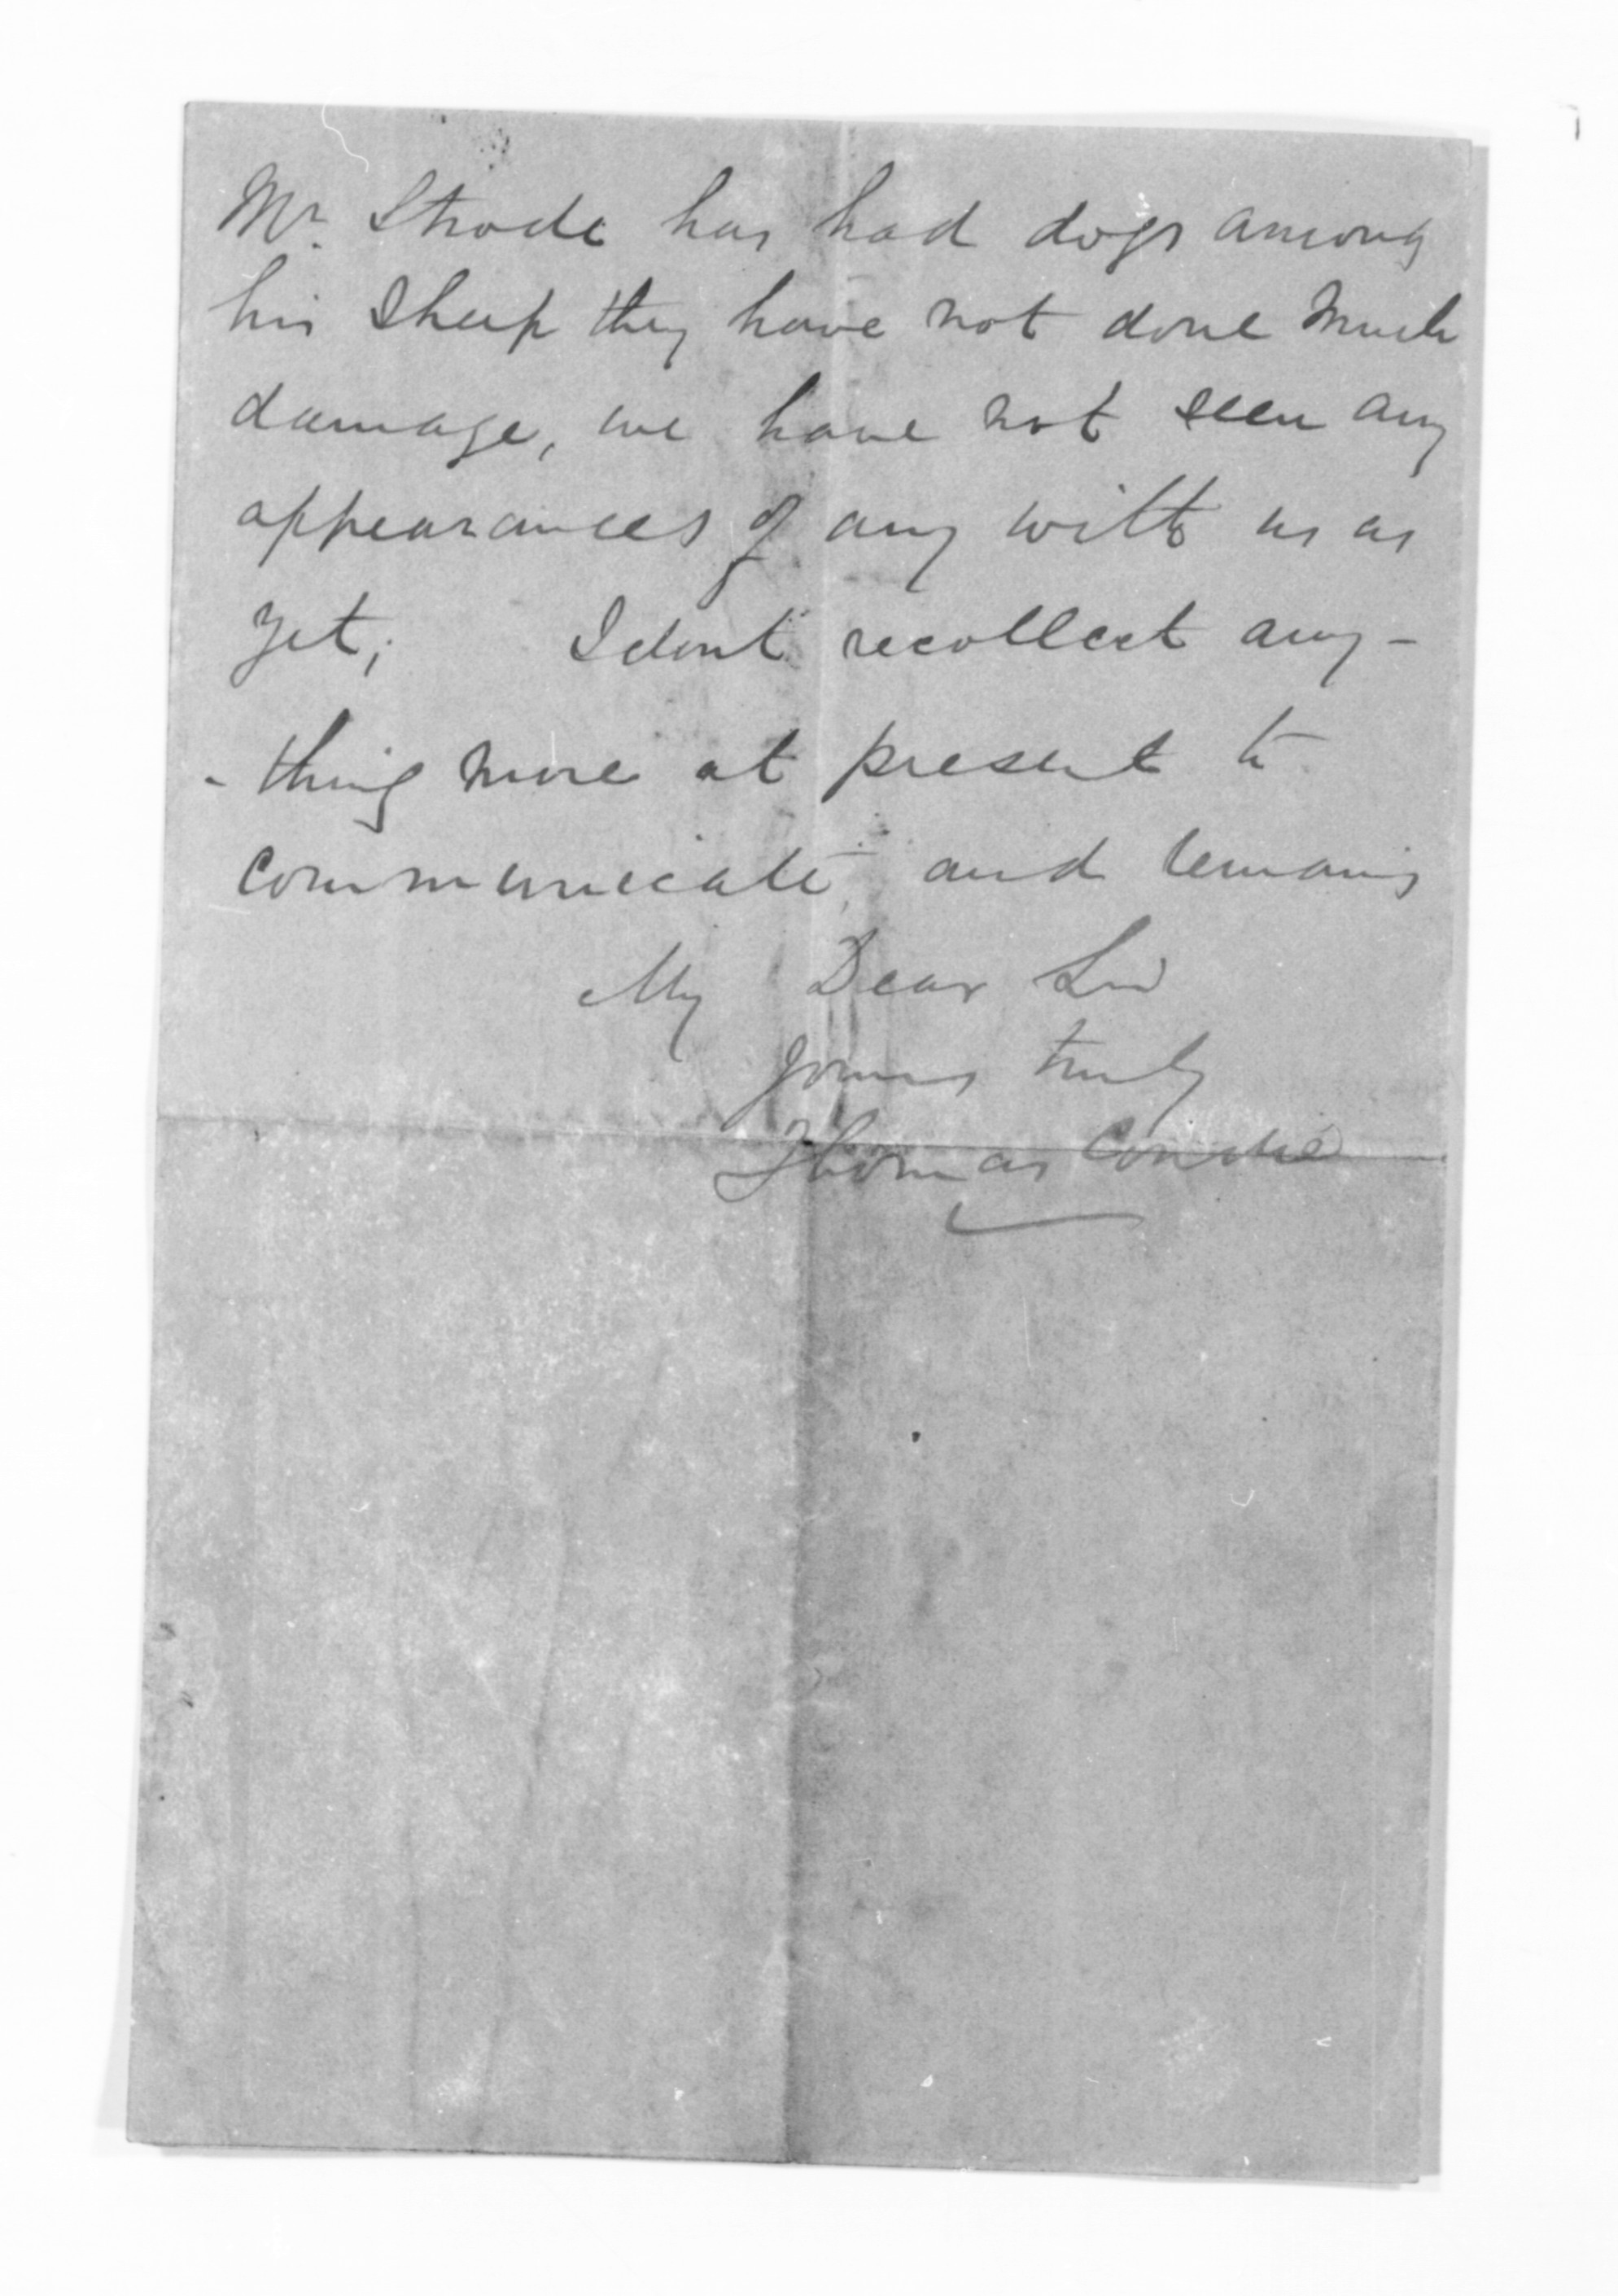 Mr. Strode has had dogs among
his Sheep they have not done much
damage, we have not seen any
appearances of any with us as
yet; I dont recollect any-
-thing more at present to
communicate and remains
My Dear Sir
yours truly
Thomas